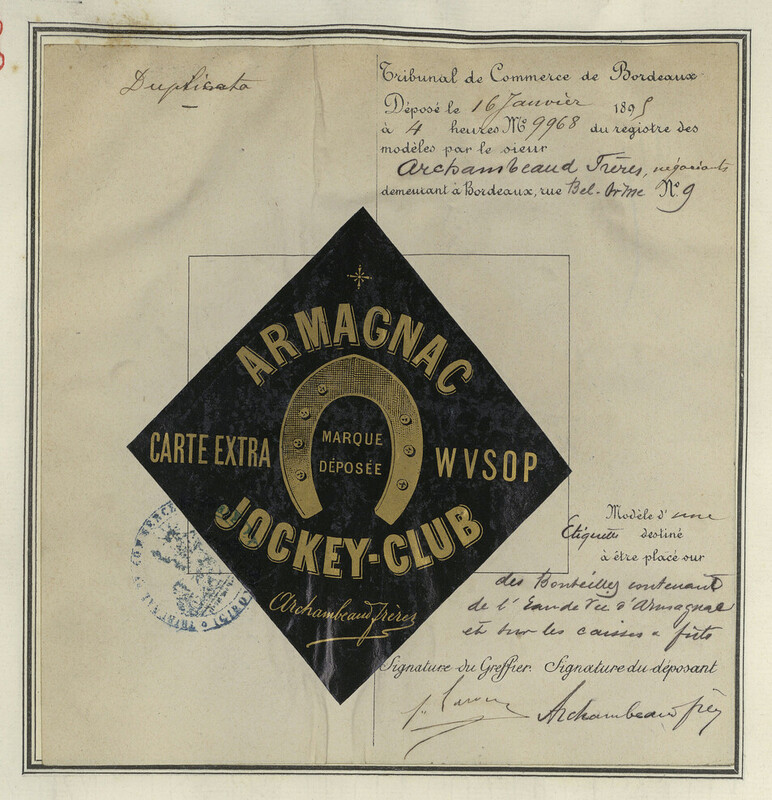 Duplicata
Tribunal de Commerce de Bordeaux
Déposé le 16 Janvier 1895
à 4 heures No 9968 du registre des
modèles par le sieur
Archambeaud Frères, négociants
demeurant à Bordeaux, rue Bel-Orme No 9
ARMAGNAC
MARQUE
DÉPOSÉE
CARTE EXTRA
WVSOP
JOCKEY-CLUB
Archambeaud frères
Modèle d'une
Etiquette destiné
à être placé sur
des Bouteilles contenant
de l'Eau de Vie d'Armagnac
et sur les caisses & fûts
Signature du Greffier. Signature du déposant
Archambeaud frères